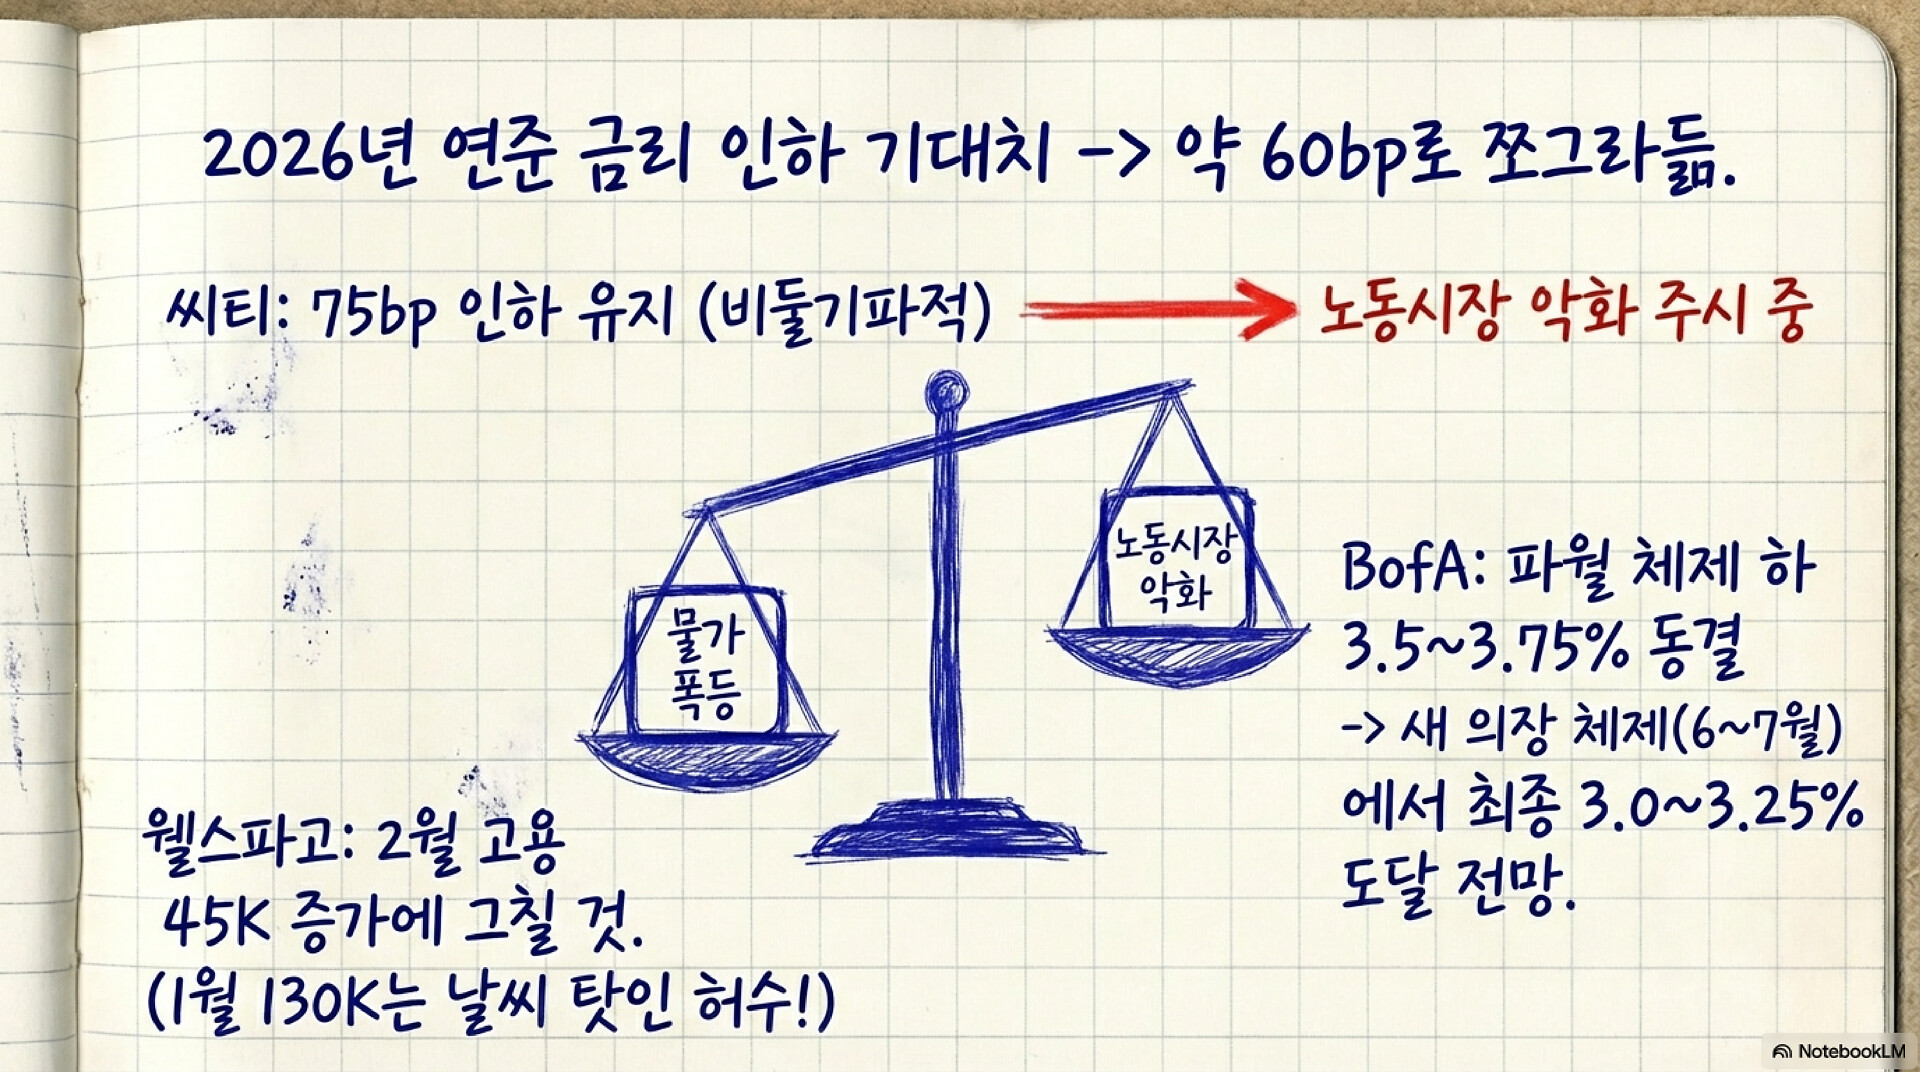 2026년 연준 금리 인하 기대치 -> 약 60bp로 쪼그라듦.
씨티: 75bp 인하 유지 (비둘기파적)
노동시장 악화 주시 중
노동시장
악화
물가
폭등
BofA: 파월 체제 하
3.5~3.75% 동결
-> 새 의장 체제(6~7월)
에서 최종 3.0~3.25%
도달 전망.
웰스파고: 2월 고용
45K 증가에 그칠 것.
(1월 130K는 날씨 탓인 허수!)
NotebookLM